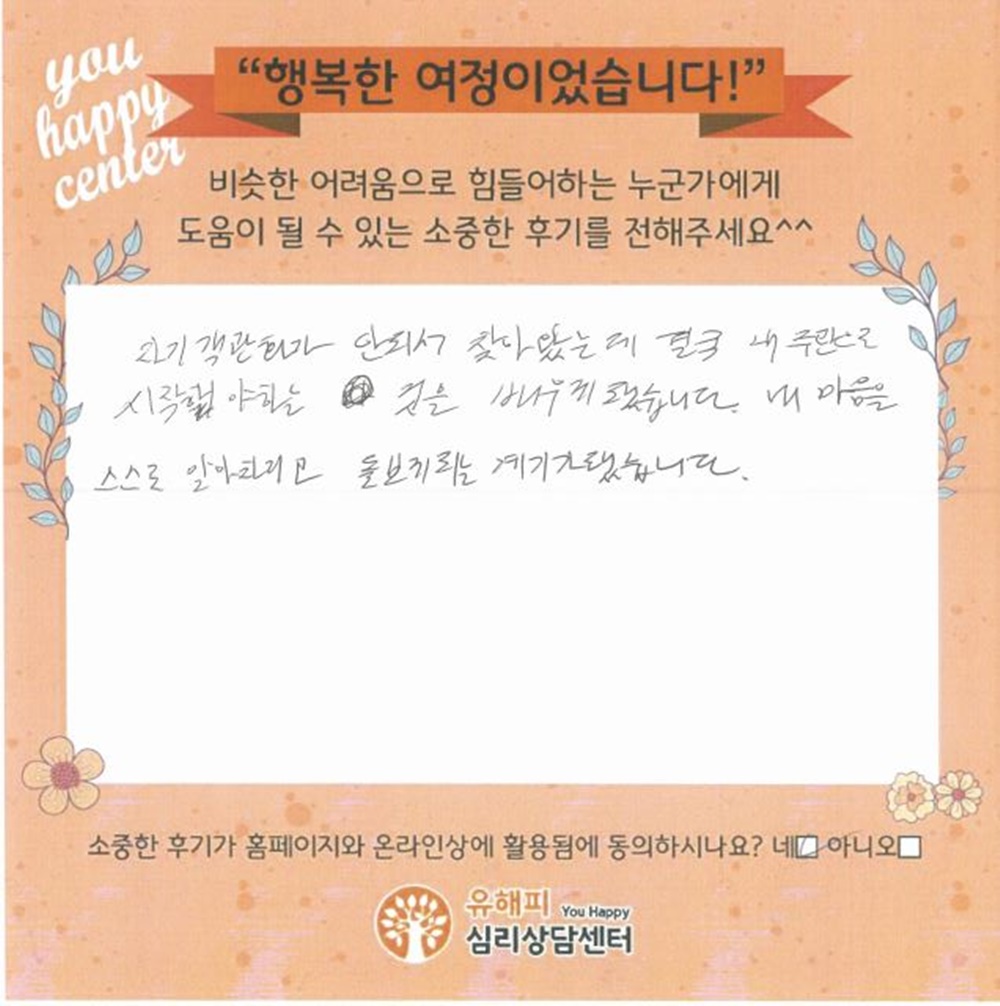 you
happy
center
“행복한 여정이었습니다!”
비슷한 어려움으로 힘들어하는 누군가에게
도움이 될 수 있는 소중한 후기를 전해주세요^^
자기 객관화가 안되서 찾아왔는데 결국 내 주관으로
시작해야하는 것을 배우게 됐습니다. 내 마음을
스스로 알아차리고 돌보게되는 계기가됐습니다.
소중한 후기가 홈페이지와 온라인상에 활용됨에 동의하시나요? 네☑ 아니오□
유해피 You Happy
심리상담센터